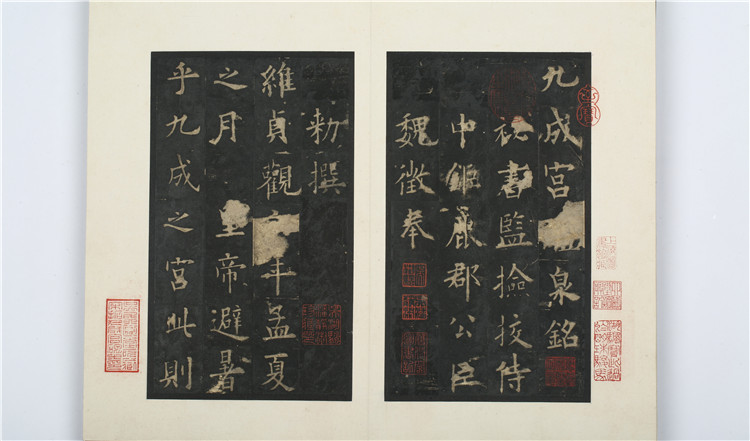 九成宮泉銘
祕書監撿挍侍
中鉅鹿郡公臣
魏徵奉
勑撰
維貞觀六年孟夏
之月 皇帝避暑
乎九成之宮此則